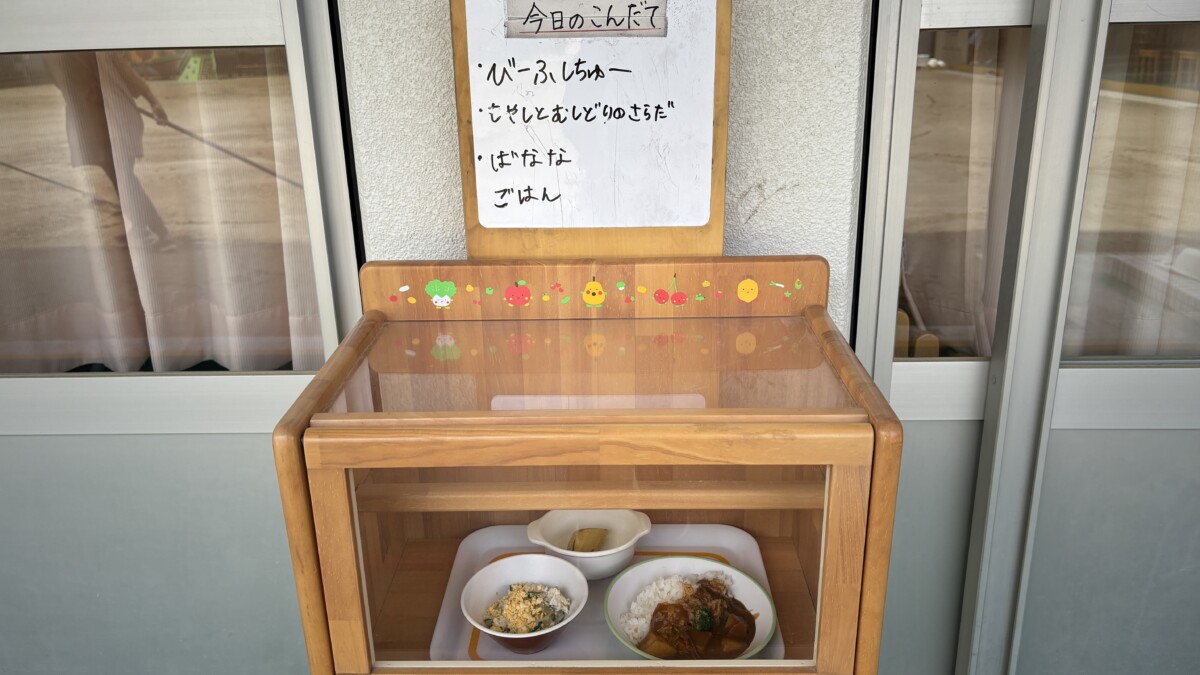 今日のこんだて
・びーふしちゅー
・もやしとむしどりのさらだ
・ばなな
ごはん